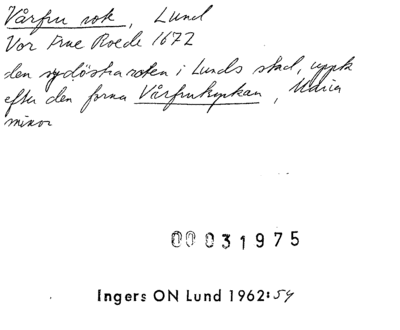 Vårfru rote, Lund
Vor Frue Roede 1672
den sydöstra roten i Lunds stad, uppk
efter den forna Vårfrukyrkan, Maria
minor
00031975
Ingers ON Lund 1962:54